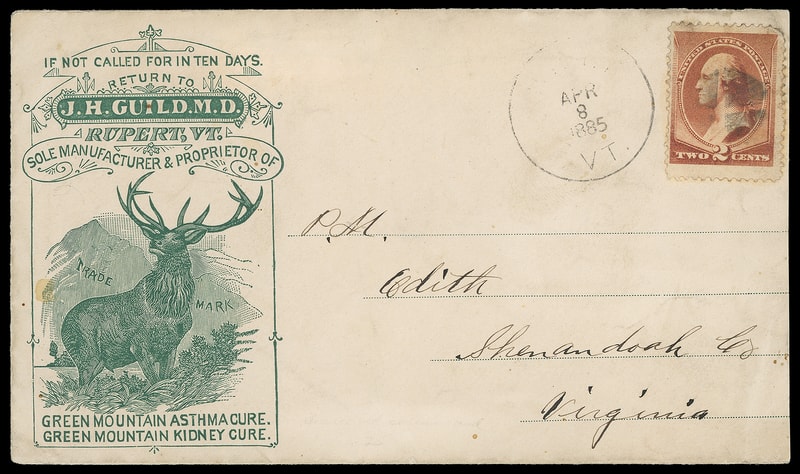 IF NOT CALLED FOR IN TEN DAYS.
RETURN TO
J.H. GUILD. M.D.
RUPERT, VT.
SOLE MANUFACTURER & PROPRIETOR OF
TRADE MARK
GREEN MOUNTAIN ASTHMA CURE.
GREEN MOUNTAIN KIDNEY CURE.
APR
8
1885
VT.
UNITED STATES POSTAGE
TWO 2 CENTS
P.M.
Edith
Shenandoah Co
Virginia